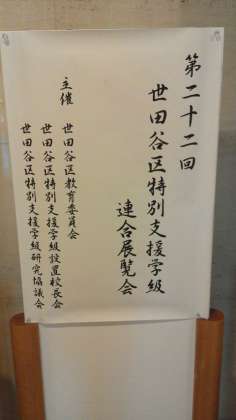 第二十二回
世田谷区特別支援学級
連合展覧会
主催
世田谷区教育委員会
世田谷区特別支援学級設置校長会
世田谷区特別支援学級研究協議会